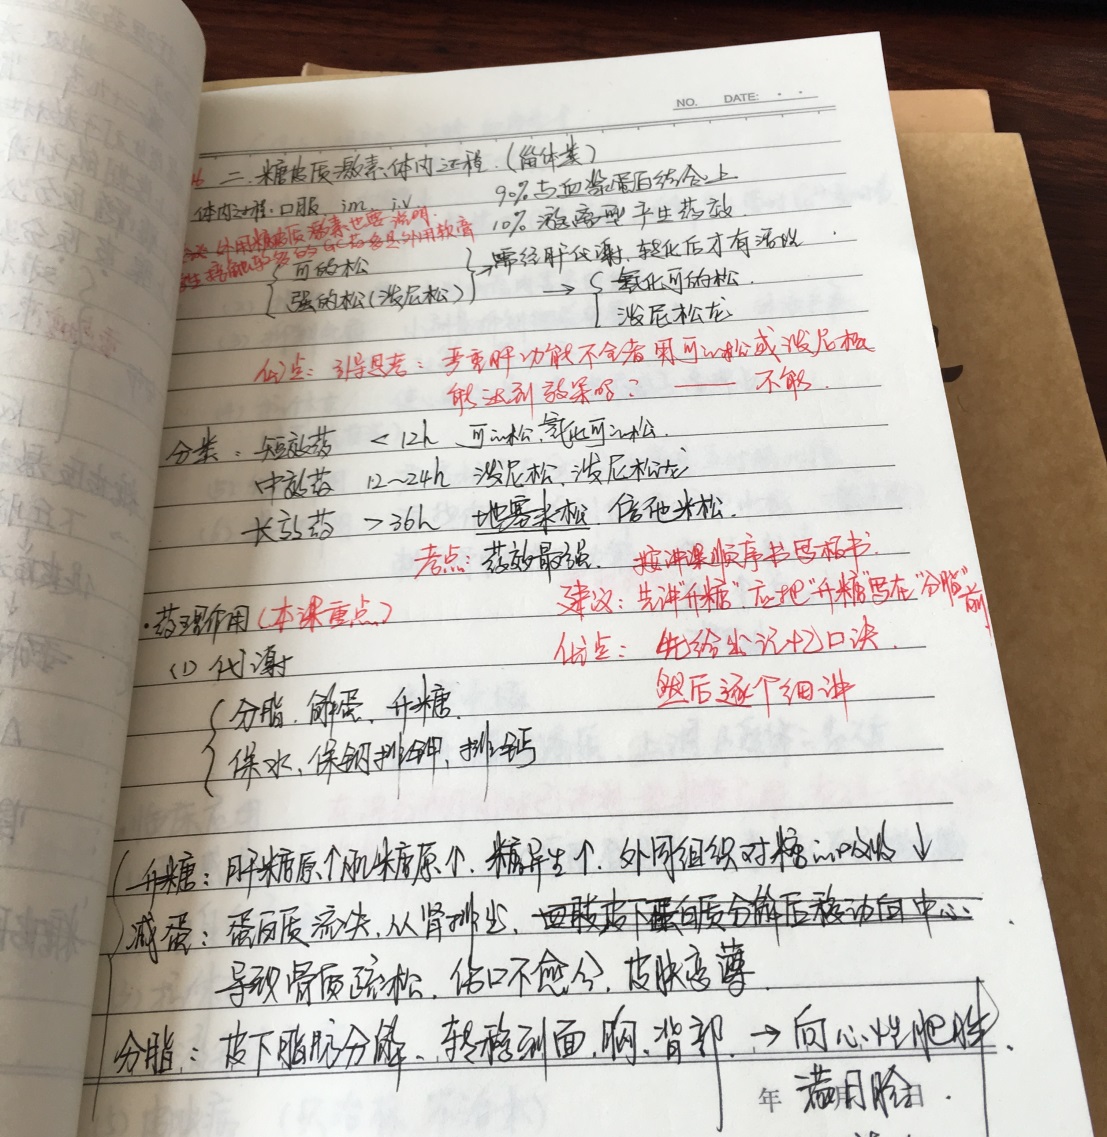 NO. DATE:
二.糖皮质激素体内过程.(甾体类)
体内过程.口服 im. i.v 90%与血浆蛋白结合上
10%游离型产生药效.
外用糖皮质激素也要说明.
GC药物是外用软膏
{可的松
强的松(泼尼松)} 需经肝代谢,转化后才有活性
→ {氢化可的松.
泼尼松龙
优点:引导思考:严重肝功能不全者用可的松或泼尼松
能达到效果吗? —— 不能.
分类:短效药 <12h 可的松.氢化可的松.
中效药 12~24h 泼尼松、泼尼松龙
长效药 >36h 地塞米松 倍他米松.
考点:药效最强. 按讲课顺序书写板书.
建议:先讲"升糖"应把"升糖"写在"分脂"前
·药理作用(本课重点)
优点:先给出记忆口诀.
(1)代谢
然后逐个细讲
{分脂.解蛋、升糖.
保水、保钠排钾、排钙
升糖:肝糖原↑肌糖原↑.糖异生↑.外周组织对糖的吸收↓
减蛋:蛋白质流失,从肾排出,四肢皮下蛋白质分解后移动向中心
导致骨质疏松.伤口不愈合.皮肤变薄.
分脂:皮下脂肪分解、转移到面.胸.背部.→向心性肥胖.
年 月 日
满月脸.